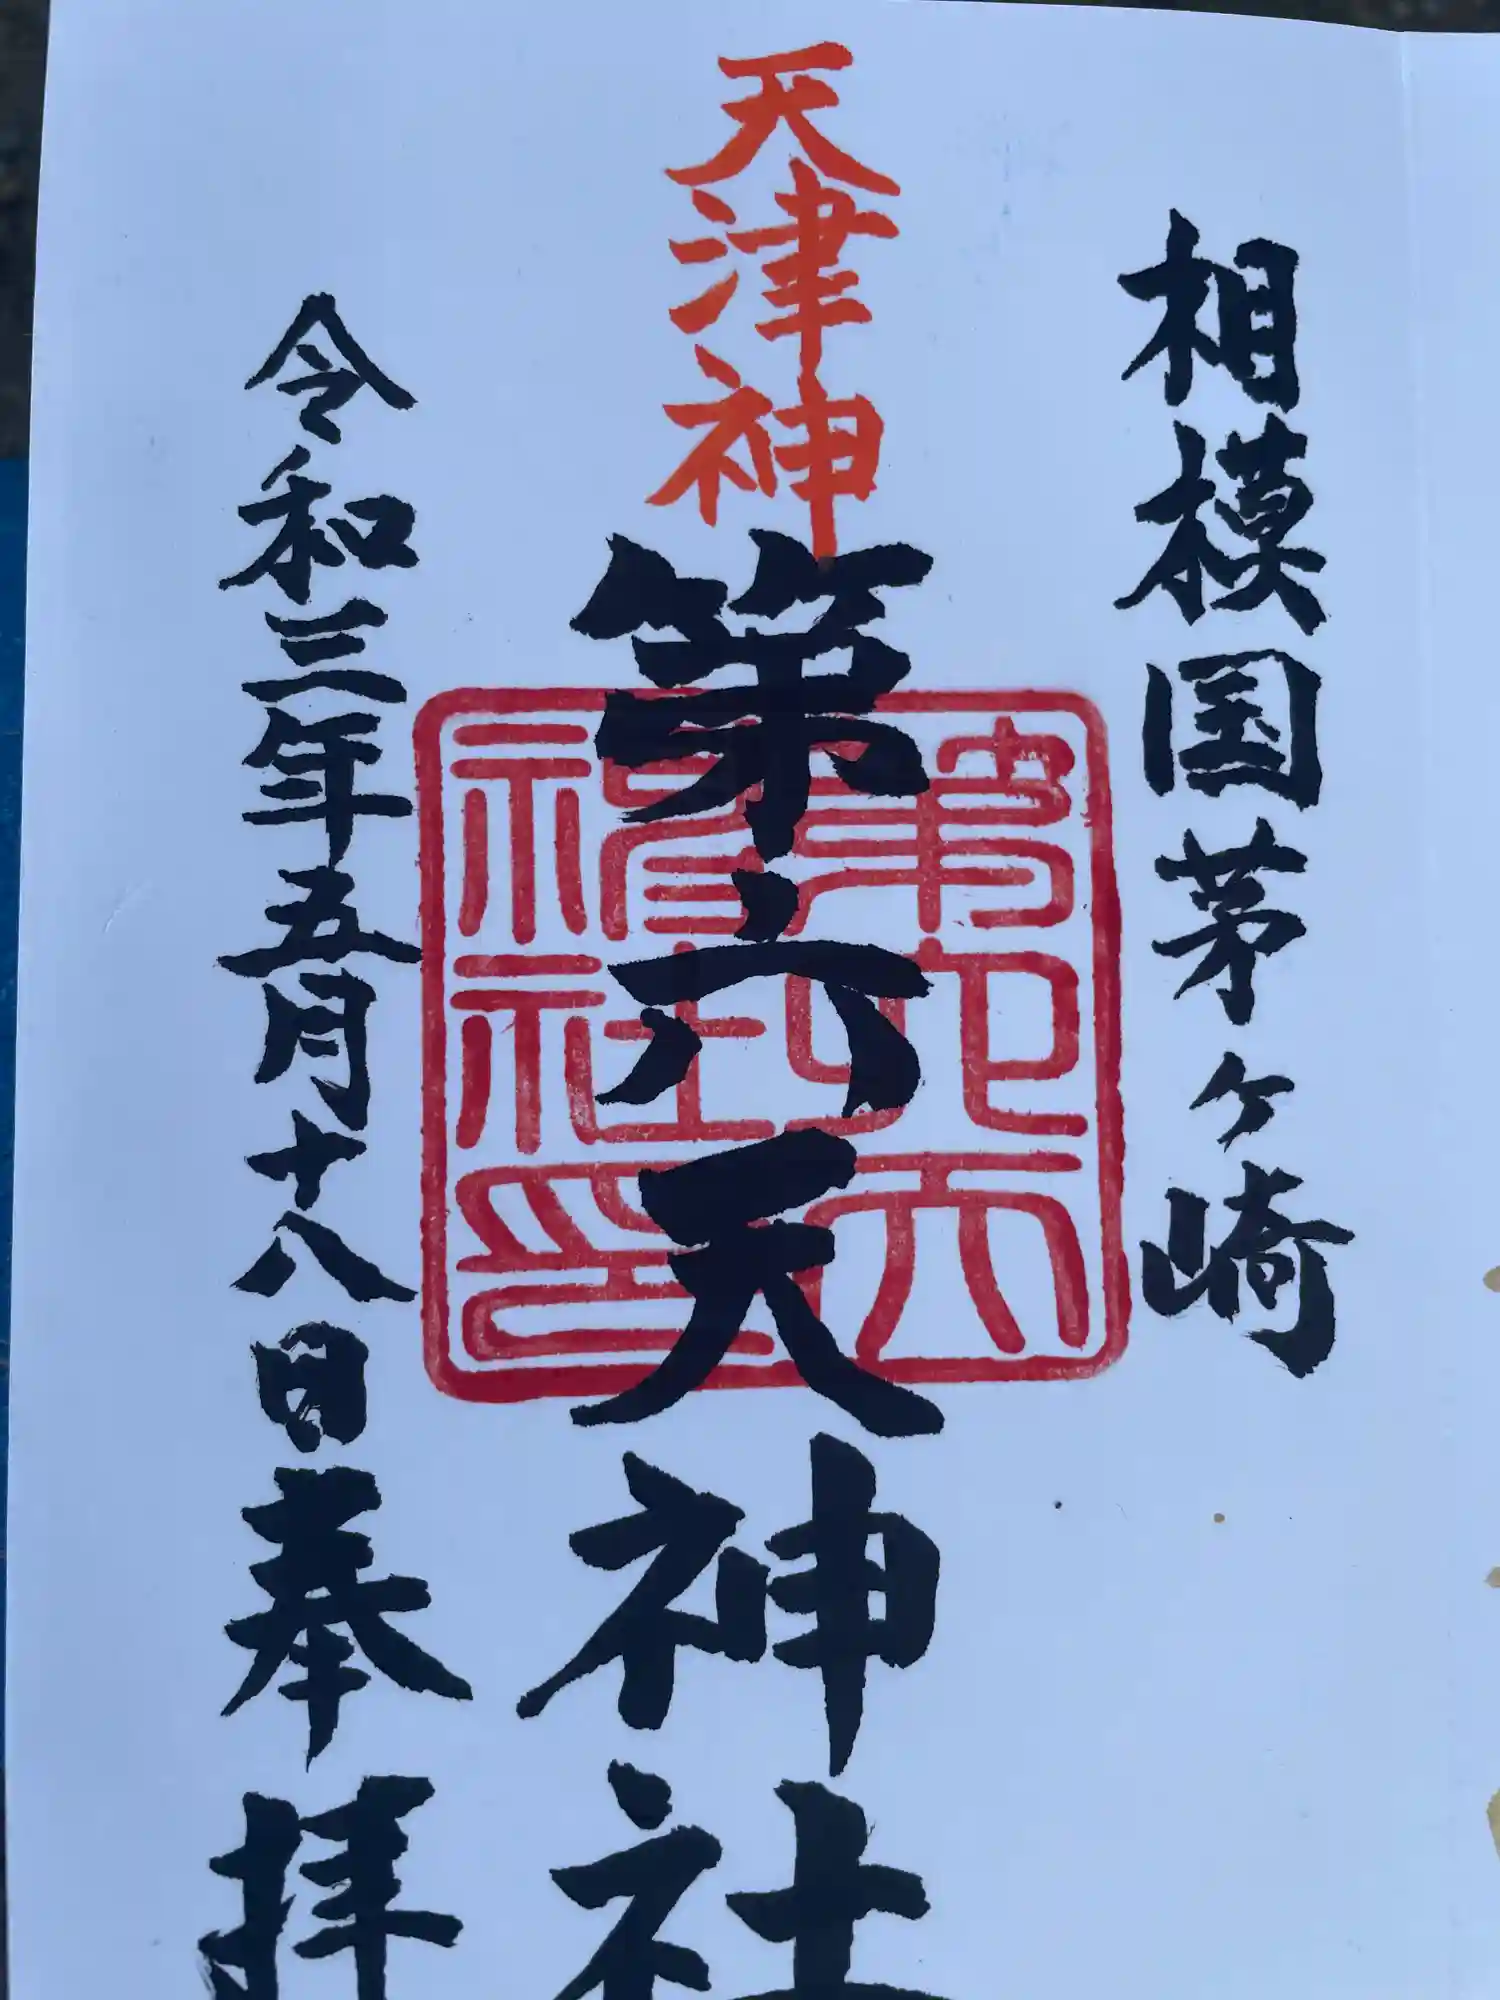 相模国茅ヶ崎
天津神
第六天神社
令和三年五月十八日奉拝